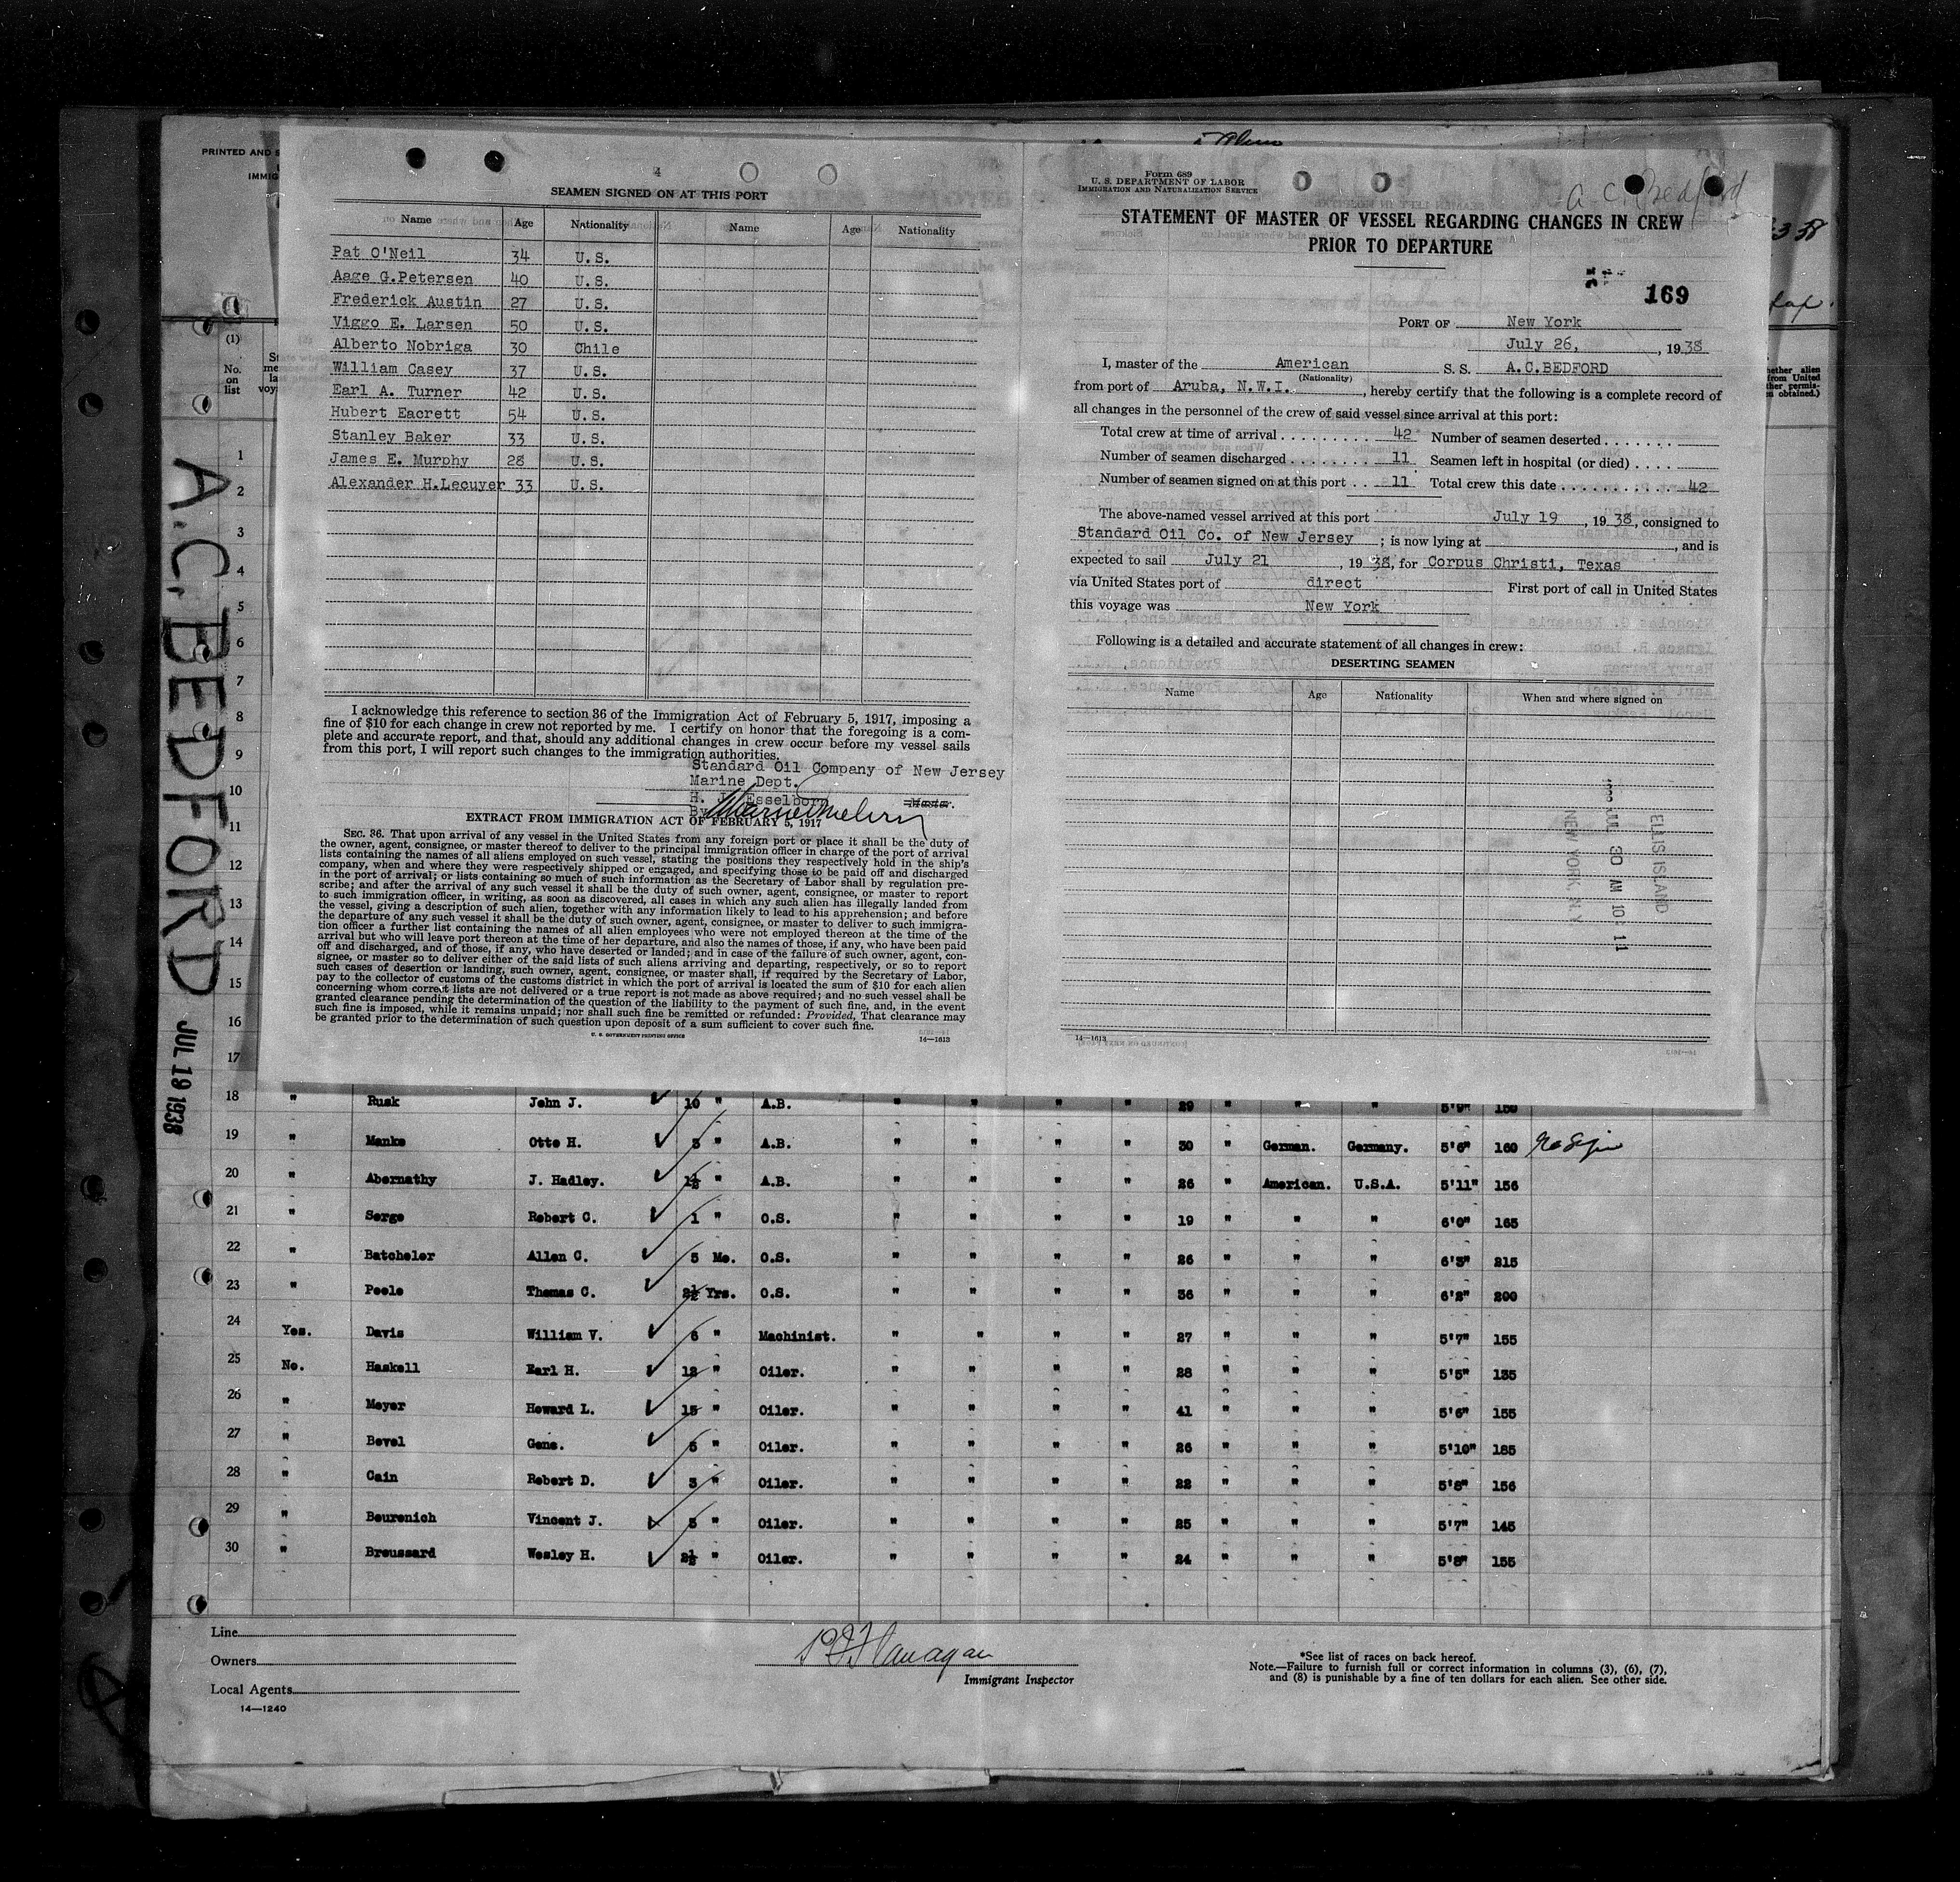 PRINTED AND
IMMIG
4
SEAMEN SIGNED ON AT THIS PORT
Name Age Nationality Name Age Nationality
Pat O'Neil 34 U.S.
Aage G.Petersen 40 U.S.
Frederick Austin 27 U.S.
Viggo E. Larsen 50 U.S.
Alberto Nobriga 30 Chile
William Casey 37 U.S.
Earl A. Turner 42 U.S.
Hubert Eacrett 54 U.S.
Stanley Baker 33 U.S.
James E. Murphy 28 U.S.
Alexander H.Lecuyer 33 U.S.
I acknowledge this reference to section 36 of the Immigration Act of February 5, 1917, imposing a
fine of $10 for each change in crew not reported by me. I certify on honor that the foregoing is a com-
plete and accurate report, and that, should any additional changes in crew occur before my vessel sails
from this port, I will report such changes to the immigration authorities.
Standard Oil Company of New Jersey
Marine Dept.
H. J. Esselborn
Master.
By
EXTRACT FROM IMMIGRATION ACT OF FEBRUARY 5, 1917
SEC. 36. That upon arrival of any vessel in the United States from any foreign port or place it shall be the duty of
the owner, agent, consignee, or master thereof to deliver to the principal immigration officer in charge of the port of arrival
lists containing the names of all aliens employed on such vessel, stating the positions they respectively hold in the ship's
company, when and where they were respectively shipped or engaged, and specifying those to be paid off and discharged
in the port of arrival; or lists containing so much of such information as the Secretary of Labor shall by regulation pre-
scribe; and after the arrival of any such vessel it shall be the duty of such owner, agent, consignee, or master to report
to such immigration officer, in writing, as soon as discovered, all cases in which any such alien has illegally landed from
the vessel, giving a description of such alien, together with any information likely to lead to his apprehension; and before
the departure of any such vessel it shall be the duty of such owner, agent, consignee, or master to deliver to such immigra-
tion officer a further list containing the names of all alien employees who were not employed thereon at the time of the
arrival but who will leave port thereon at the time of her departure, and also the names of those, if any, who have been paid
off and discharged, and of those, if any, who have deserted or landed; and in case of the failure of such owner, agent, con-
signee, or master so to deliver either of the said lists of such aliens arriving and departing, respectively, or so to report
such cases of desertion or landing, such owner, agent, consignee, or master shall, if required by the Secretary of Labor,
pay to the collector of customs of the customs district in which the port of arrival is located the sum of $10 for each alien
concerning whom correct lists are not delivered or a true report is not made as above required; and no such vessel shall be
granted clearance pending the determination of the question of the liability to the payment of such fine, and, in the event
such fine is imposed, while it remains unpaid; nor shall such fine be remitted or refunded: Provided, That clearance may
be granted prior to the determination of such question upon deposit of a sum sufficient to cover such fine.
U. S. GOVERNMENT PRINTING OFFICE 14—1613
Form 689
U. S. DEPARTMENT OF LABOR
IMMIGRATION AND NATURALIZATION SERVICE
A C Bedford
STATEMENT OF MASTER OF VESSEL REGARDING CHANGES IN CREW
PRIOR TO DEPARTURE
169
PORT OF New York
July 26, , 1938
I, master of the American S. S. A.C.BEDFORD
(Nationality)
from port of Aruba, N.W.I. , hereby certify that the following is a complete record of
all changes in the personnel of the crew of said vessel since arrival at this port:
Total crew at time of arrival 42 Number of seamen deserted
Number of seamen discharged 11 Seamen left in hospital (or died)
Number of seamen signed on at this port 11 Total crew this date 42
The above-named vessel arrived at this port July 19 , 1938, consigned to
Standard Oil Co. of New Jersey ; is now lying at , and is
expected to sail July 21 , 1938, for Corpus Christi, Texas
via United States port of direct First port of call in United States
this voyage was New York
Following is a detailed and accurate statement of all changes in crew:
DESERTING SEAMEN
Name Age Nationality When and where signed on
ELLIS ISLAND
JUL 30 AM 10 11
NEW YORK, N.Y.
14—1613
A.C.BEDFORD JUL 19 1938
(1)
No.
on
list
1
2
3
4
5
6
7
8
9
10
11
12
13
14
15
16
17
18 " Rusk John J. 10 " A.B. " " " " 29 " " " 5'9" 150
19 " Manke Otto H. 5 " A.B. " " " " 30 " German. Germany. 5'6" 160
20 " Abernathy J. Hadley. 1½ " A.B. " " " " 26 " American. U.S.A. 5'11" 156
21 " Serge Robert C. 1 " O.S. " " " " 19 " " " 6'0" 165
22 " Batchelor Allen C. 5 Mo. O.S. " " " " 26 " " " 6'3" 215
23 " Peele Thomas C. 2½ Yrs. O.S. " " " " 36 " " " 6'2" 200
24 Yes. Davis William V. 6 " Machinist. " " " " 27 " " " 5'7" 155
25 No. Haskell Earl H. 12 " Oiler. " " " " 28 " " " 5'5" 135
26 " Meyer Howard L. 15 " Oiler. " " " " 41 " " " 5'6" 155
27 " Bevel Gene. 5 " Oiler. " " " " 26 " " " 5'10" 185
28 " Cain Robert D. 3 " Oiler. " " " " 22 " " " 5'8" 156
29 " Beurenich Vincent J. 5 " Oiler. " " " " 25 " " " 5'7" 145
30 " Broussard Wesley H. 2½ " Oiler. " " " " 24 " " " 5'8" 155
Line
Owners
Local Agents
14—1240
P J Flanagan
Immigrant Inspector
*See list of races on back hereof.
Note.—Failure to furnish full or correct information in columns (3), (6), (7),
and (8) is punishable by a fine of ten dollars for each alien. See other side.